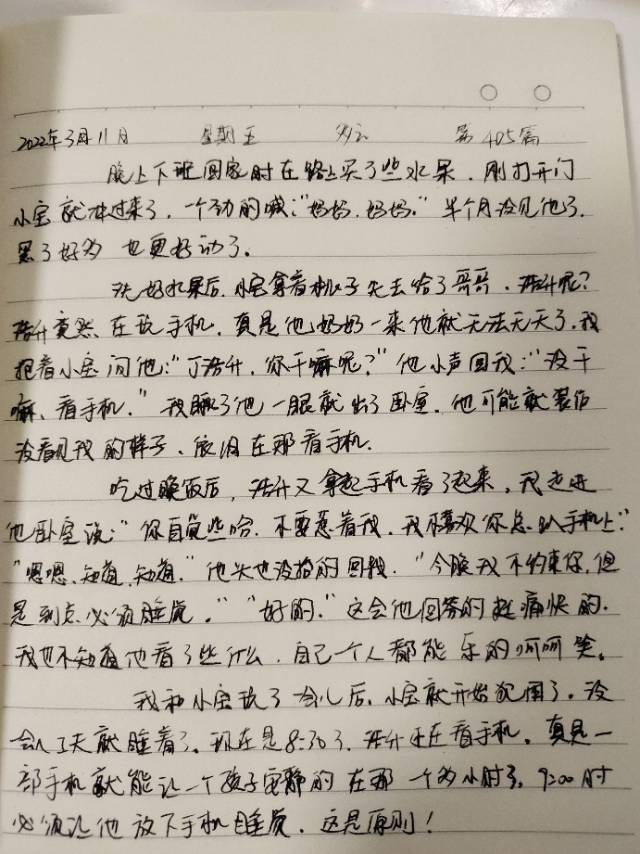 2022年3月11日 星期五 多云 第405篇
晚上下班回家时在路上买了些水果，刚打开门
小宝就冲过来了，一个劲的喊：“妈妈，妈妈。”半个月没见他了，
黑了好多 也更好动了。
洗好水果后，小宝拿着桃子先去给了哥哥，浩升呢？
浩升竟然在玩手机，真是他奶奶一来他就无法无天了，我
抱着小宝问他：“丁浩升，你干嘛呢？”他小声回我：“没干
嘛、看手机。”我瞅了他一眼就出了卧室，他可能就装作
没看见我的样子、依旧在那看手机.
吃过晚饭后，浩升又拿起手机看了起来，我走进
他卧室说：“你自觉些哈，不要惹着我，我不喜欢你总趴手机上”。
“嗯嗯，知道，知道。”他头也没抬的回我，“今晚我不约束你，但
是到点必须睡觉。”“好的。”这会他回答的挺痛快的.
我也不知道他看了些什么，自己一个人都能乐的呵呵笑。
我和小宝玩了会儿后，小宝就开始犯困了，没
会儿就睡着了。现在是8:30了，浩升还在看手机。真是一
部手机就能让一个孩子安静的在那一个多小时了，9:00时
必须让他放下手机睡觉，这是原则！